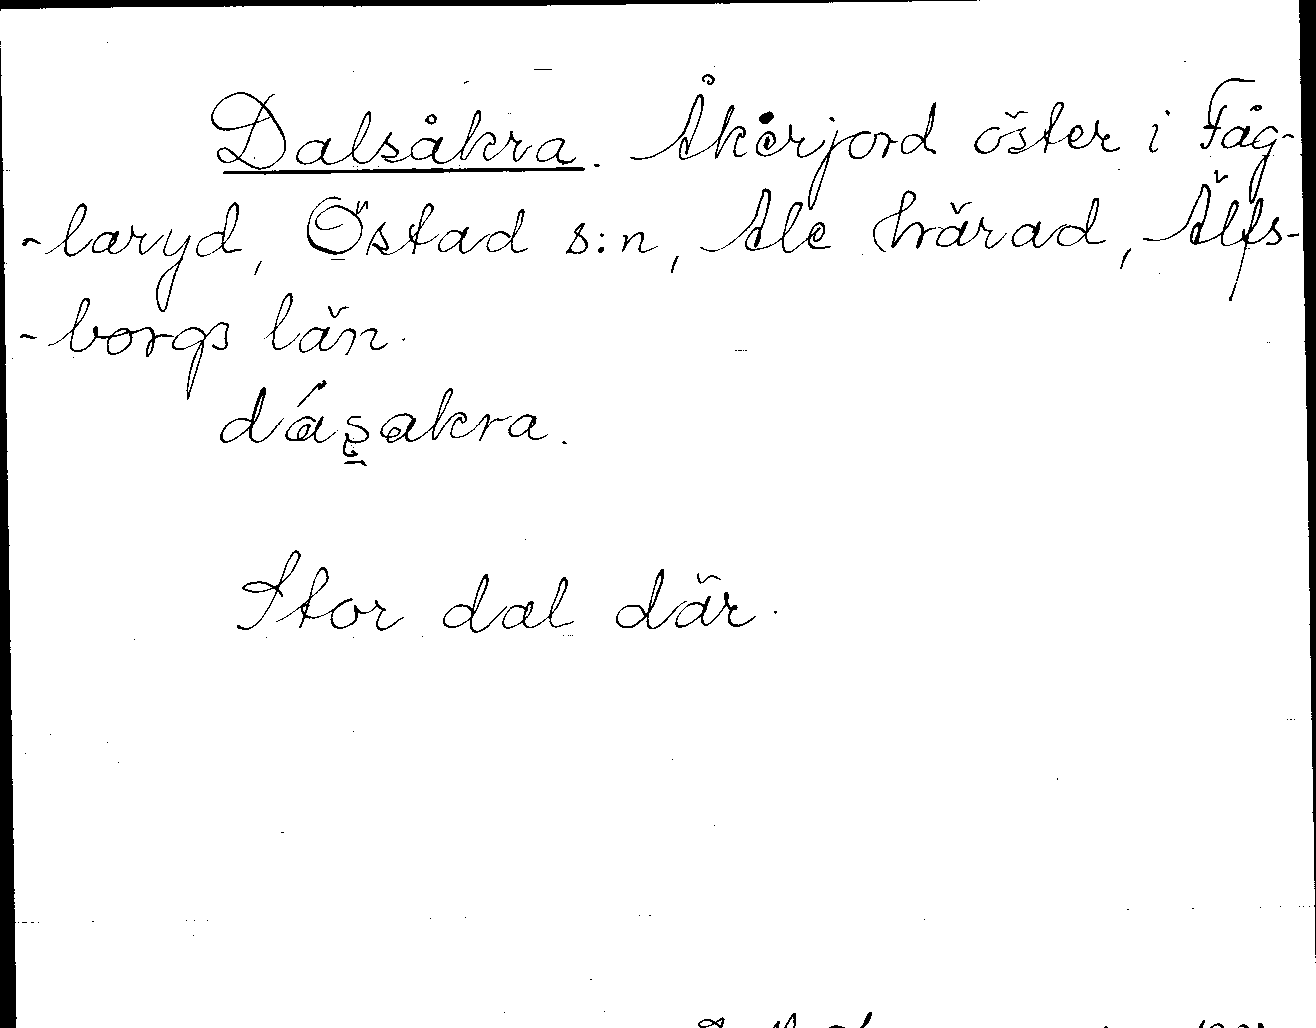 Dalsåkra. Åkerjord öster i Fåg-
-laryd, Östad s:n, Ale härad, Älfs-
-borgs län.
dásakra.
Stor dal där.